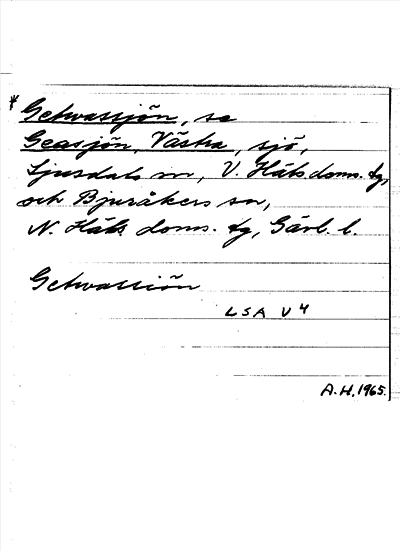 * Getwassjön, se
Geasjön, Västra, sjö,
Ljusdals sn, V. Häls. doms. tg,
och Bjuråkers sn,
N. Häls doms. tg, Gävl. l.
Getwassiön
LSA U 4
A.H. 1965.